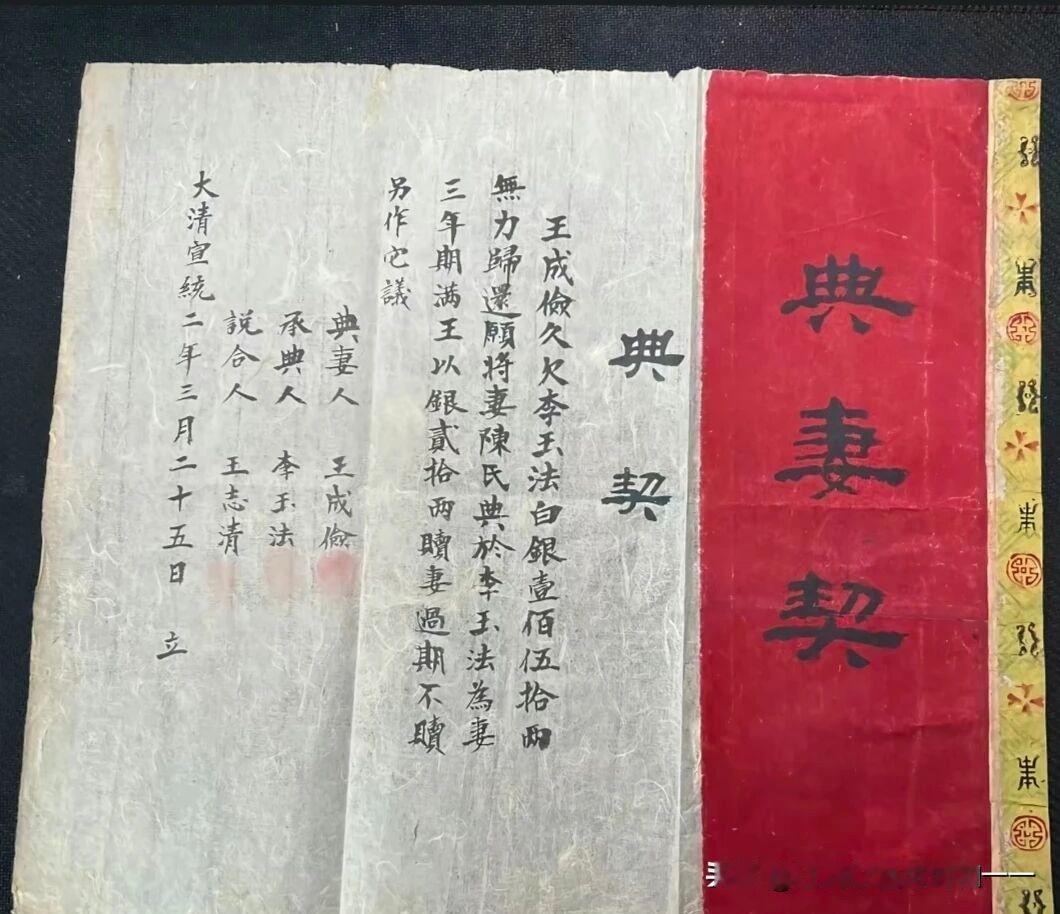 典妻契
典契
王成儉久欠李玉法白銀壹佰伍拾兩
無力歸還願將妻陳氏典於李玉法為妻
三年期满王以銀貳拾兩贖妻過期不贖
另作它議
典妻人 王成儉
承典人 李玉法
説合人 王志清
大清宣統二年三月二十五日 立